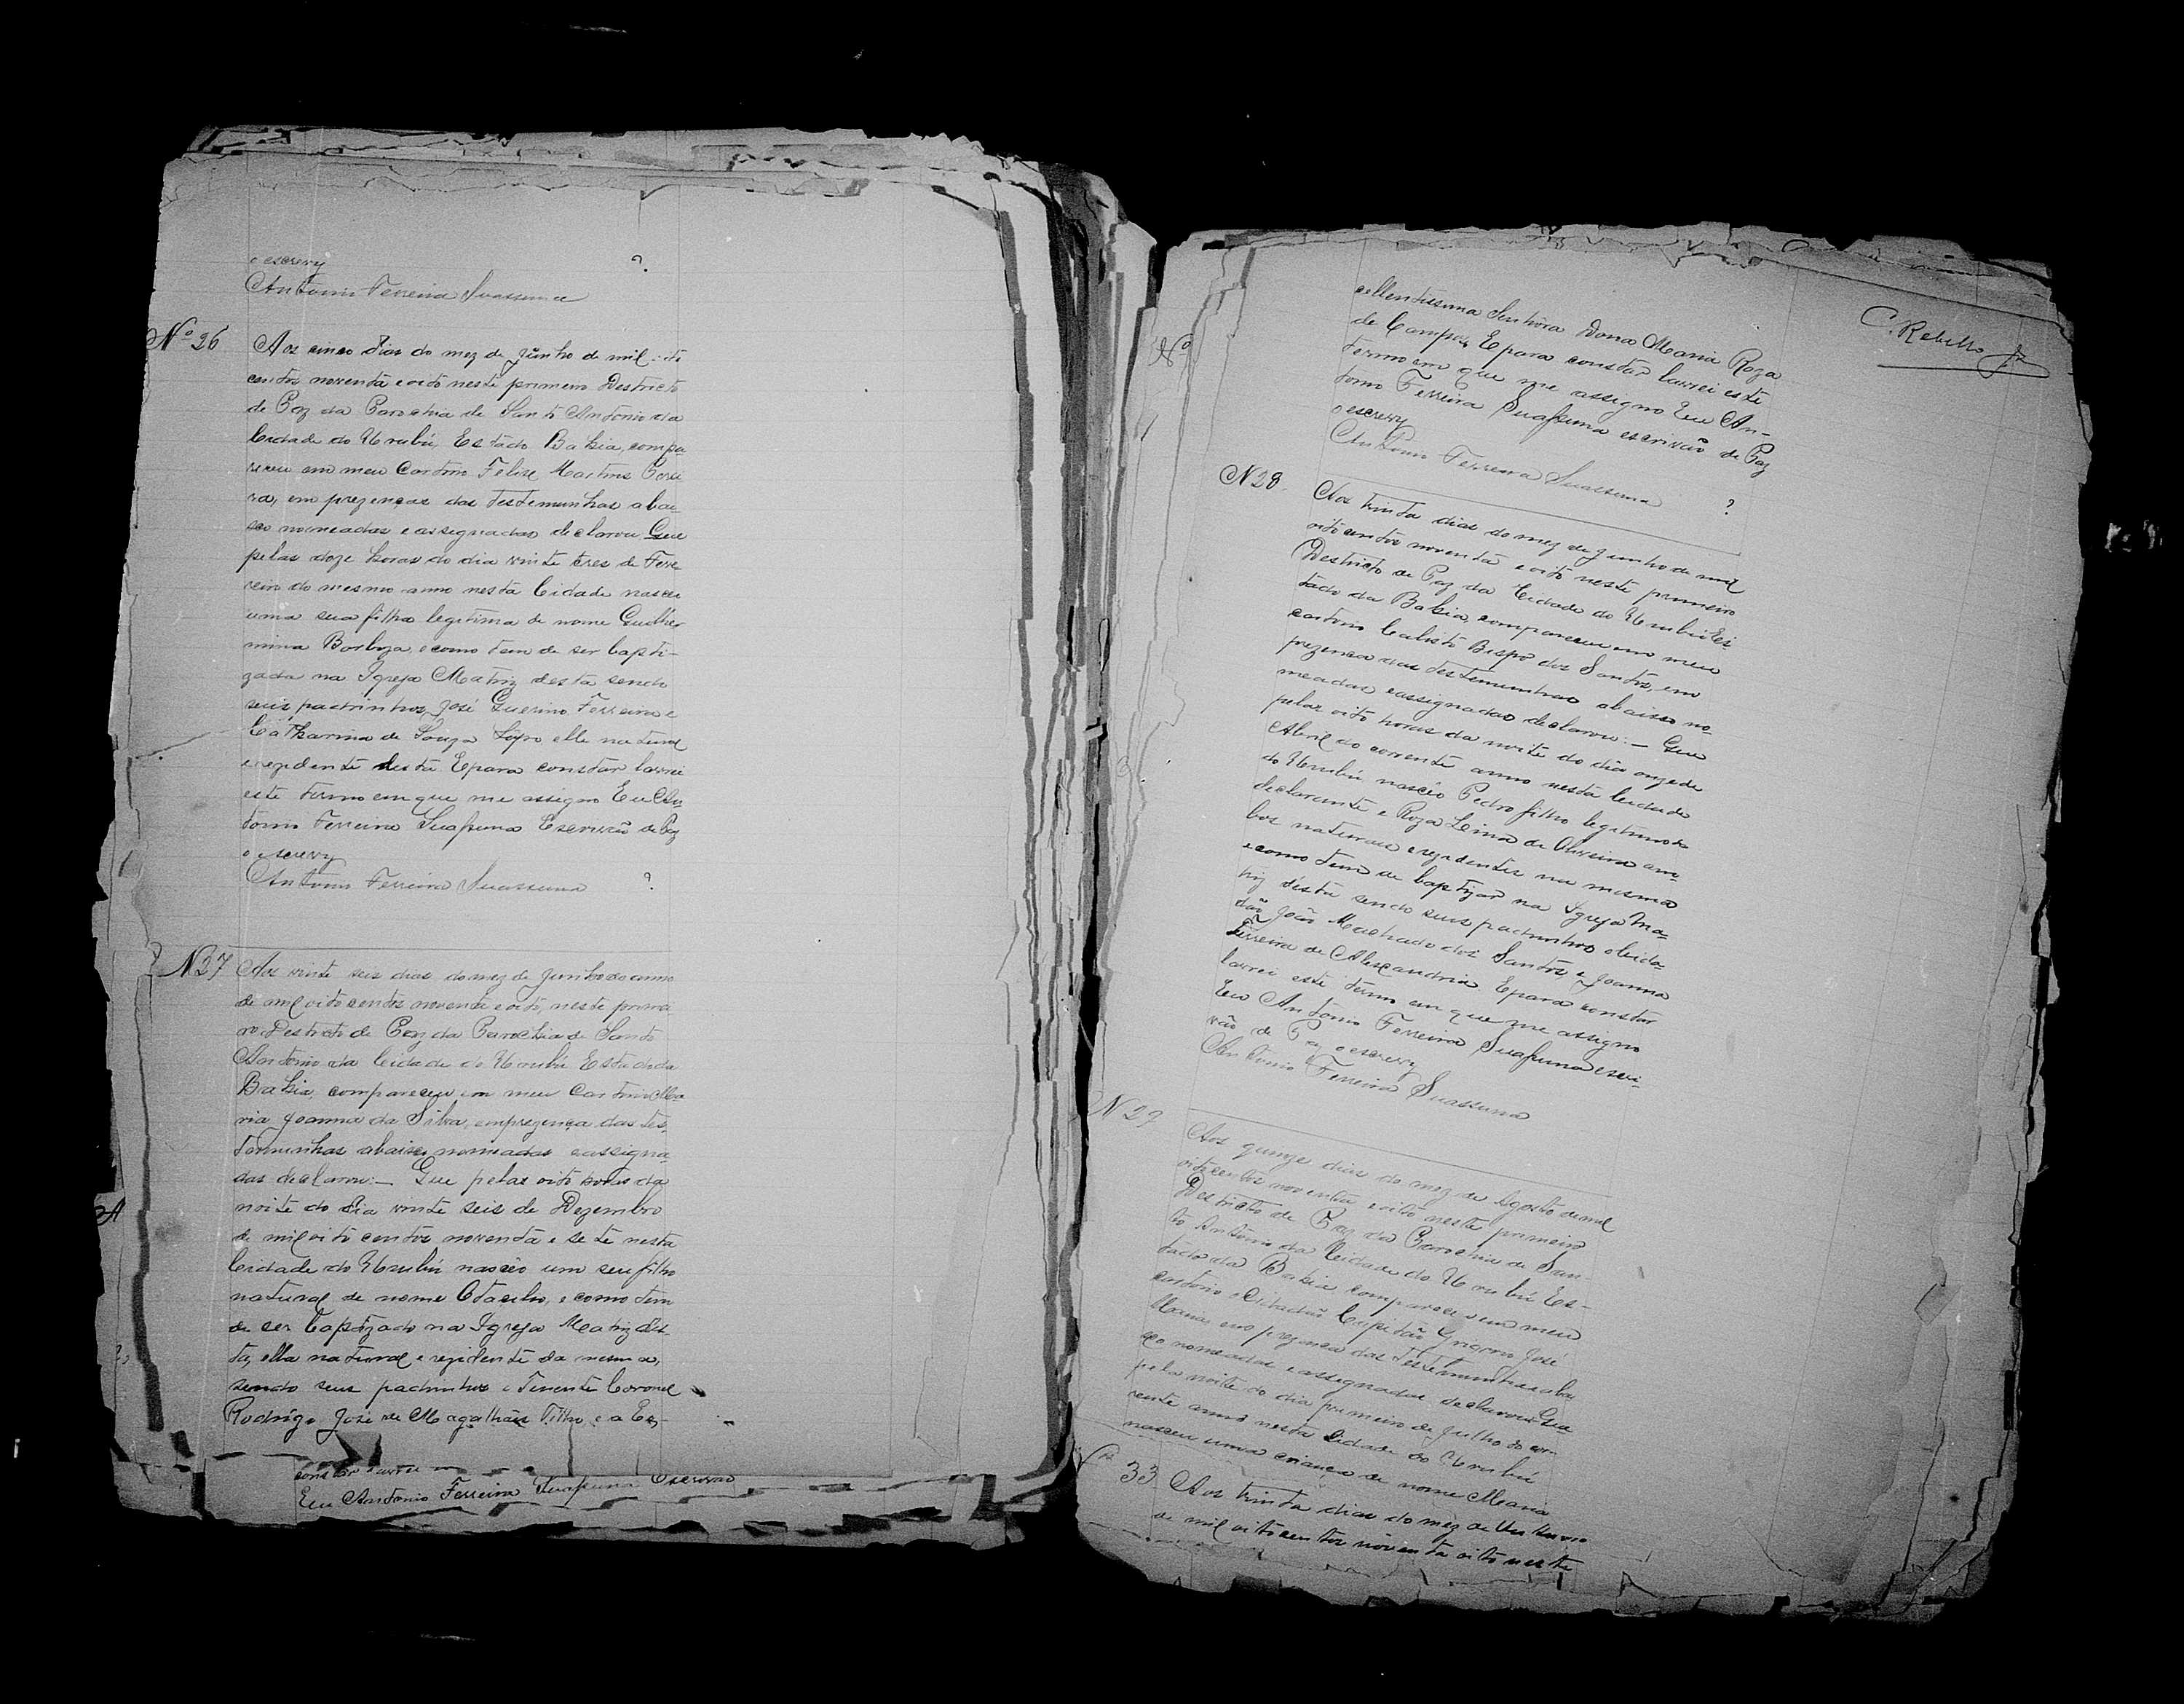 o escrevy
?
Antonio Ferreira Suassuna
Nº 26
Aos cinco dias do mez de Junho de mil oito
centos noventa e oito neste primeiro Destricto
de Paz da Parochia de Santo Antonio da
Cidade do Urubú Estado Bahia, compa
receu em meu Cartorio Felix Martins Perei
ra, em prezenças das testemunhas abai
xo nomeadas e assignadas declarou Que
pelas doze horas do dia vinte tres de Feve
reiro do mesmo anno nesta Cidade nasceu
uma sua filha legitima de nome Guilher
mina Barboza, e como tem de ser bapti-
zada na Igreja Matriz desta sendo
seus padrinhos José Guerino Ferreira e
Catharina de Souza Lopo elle natural
e rezidente desta. E para constar lavrei
este termo em que me assigno Eu An
tonio Ferreira Suassuna Escrivão de Paz
o escrevy
Antonio Ferreira Suassuna ?
N 27
Aos vinte seis dias do mez de Junho do anno
de mil oito centos noventa e oito, neste primei
ro Destricto de Paz da Parochia de Santo
Antonio da Cidade do Urubú Estado da
Bahia, compareceu em meu Cartorio Ma
ria Joanna da Silva, em prezença das tes
temunhas abaixo nomeadas e assigna
das declarou:— Que pelas oito horas da
noite do dia vinte seis de Dezembro
de mil oito centos noventa e sete nesta
Cidade do Urubú nasceo um seu filho
natural de nome Otacilio, e como tem
de ser baptizado na Igreja Matriz des
ta, ella natural e rezidente da mesma,
sendo seus padrinhos o Tenente Coronel
Rodrigo José de Magalhães Filho, e a Ex-
constar lavrei
Eu Antonio Ferreira Suassuna Escrivão
C. Rebello
Nº
cellentissima Senhora Dona Maria Roza
de Campos E para constar lavrei este
termo em que me assigno Eu An-
tonio Ferreira Suassuna escrivão de Paz
o escrevy
Antonio Ferreira Suassuna ?
N 28
Aos trinta dias do mez de Junho de mil
oito centos noventa e oito neste primeiro
Destricto de Paz da Cidade do Urubú Es
tado da Bahia, compareceu em meu
cartorio Calisto Bispo dos Santos, em
prezença das testemunhas abaixo no-
meadas e assignadas declarou:— Que
pelas oito horas da noite do dia onze de
Abril do corrente anno nesta Cidade
do Urubú nasceo Pedro filho legitimo do
declarante e Roza Lina de Oliveira am-
bos naturaes e rezidentes na mesma
e como tem de baptizar na Igreja Ma-
triz desta sendo seus padrinhos o Cida-
dão João Machado dos Santos e Joanna
Ferreira de Alexandria. E para constar
lavrei este termo em que me assigno
Eu Antonio Ferreira Suassuna escri-
vão de Paz o escrevy
Antonio Ferreira Suassuna
N 29
Aos quinze dias do mez de Agosto de mil
oito centos noventa e oito neste primeiro
Destricto de Paz da Parochia de San-
to Antonio da Cidade do Urubú Es-
tado da Bahia compareceu em meu
cartorio o Cidadão Capitão José
em prezença das testemunhas abai
xo nomeadas e assignadas declarou Que
pela noite do dia primeiro de Julho do cor-
rente anno nesta Cidade do Urubú
nasceu uma criança de nome Maria
33
Aos trinta dias do mez de Outubro
de mil oito centos noventa oito neste